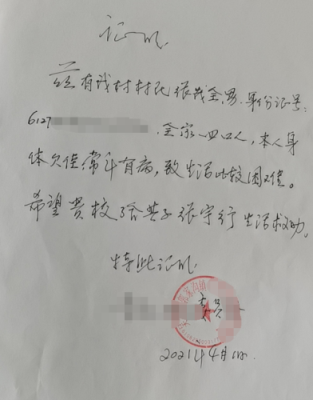 证明
兹有我村村民张茂全男,身份证号:
6127 全家一四口人,本人身
体欠佳常年有病,致生活比较困难。
希望贵校给其子张宇行生活救助。
特此证明
委员
2021年4月1日